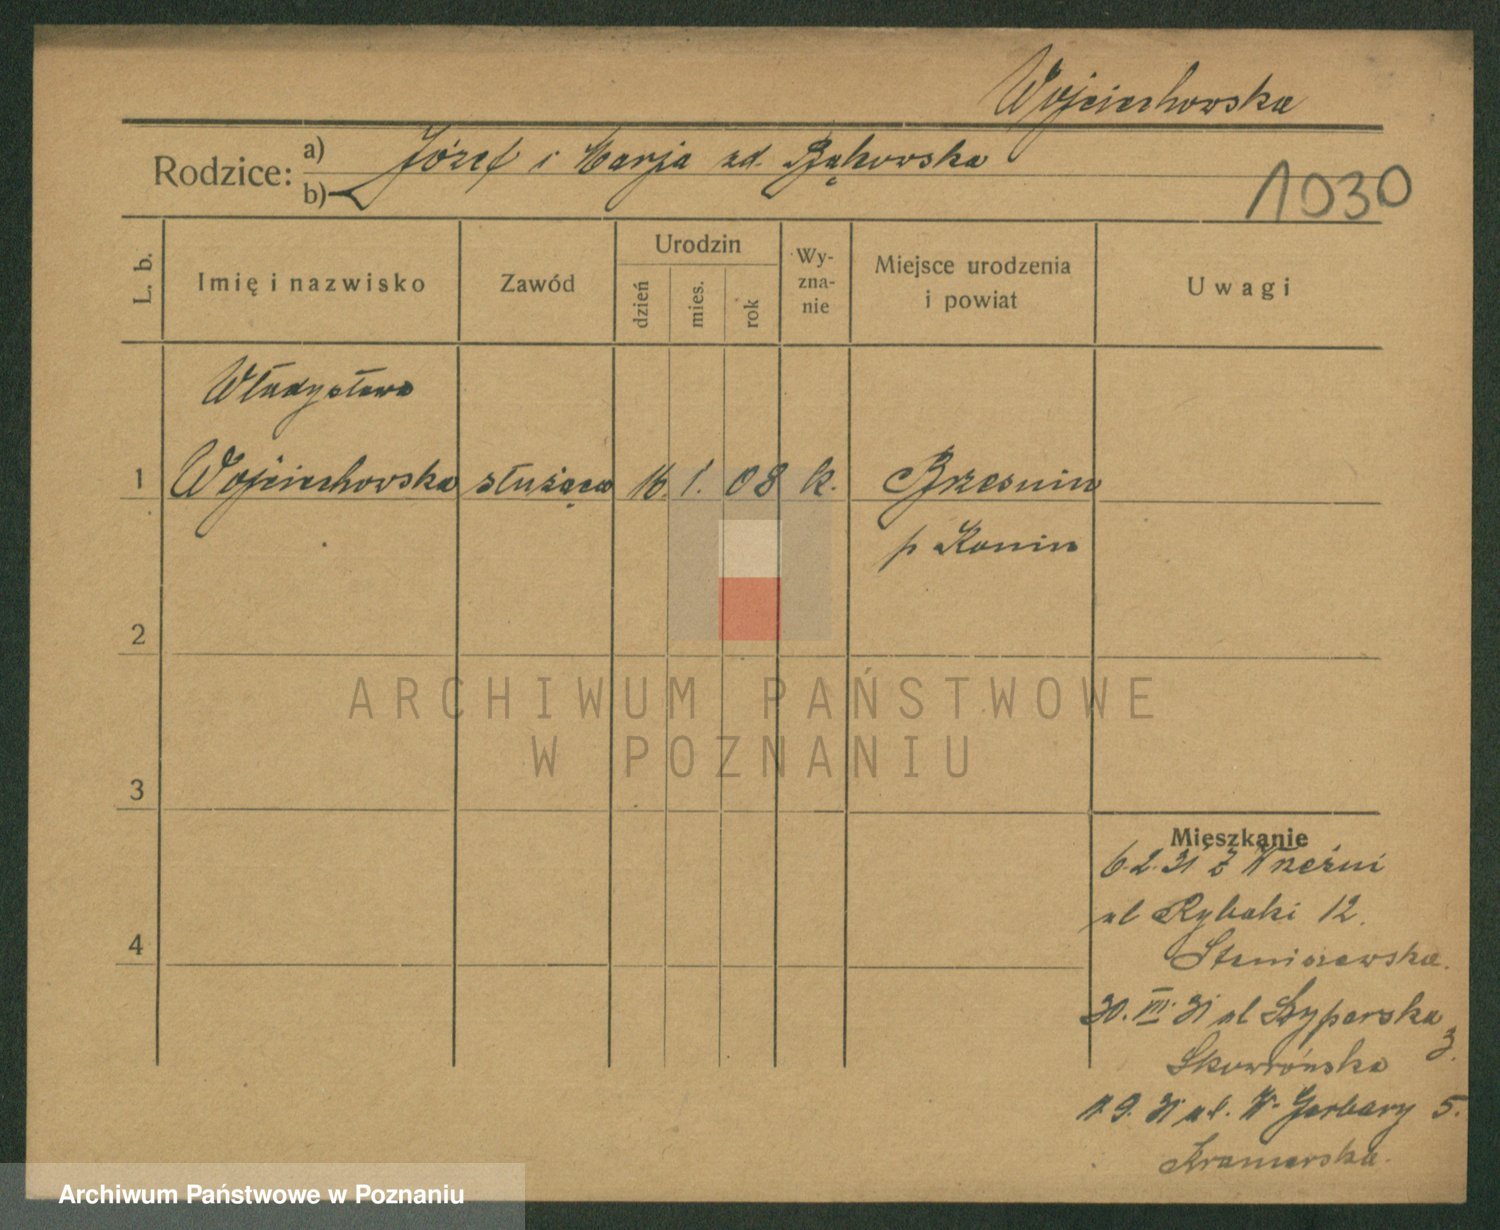 Wojciechowska
Rodzice: a) Józef i Marja zd. Bąkowska
b)
1030
L. b.
Imię i nazwisko
Zawód
Urodzin
dzień
mies.
rok
Wy-
zna-
nie
Miejsce urodzenia
i powiat
Uwagi
Władysława
1 Wojciechowska służąca 16. 1. 08 k. Brzesnin
p Konin
2
ARCHIWUM PAŃSTWOWE
W POZNANIU
3
Mieszkanie
6.2.31 z Wrześni
ul Rybaki 12.
4
Staniszewska.
30. VII. 31 ul Szyperska
3.
Skowrońska
1.9. 31 ul. W. Garbary 5.
Kramerska.
Archiwum Państwowe w Poznaniu